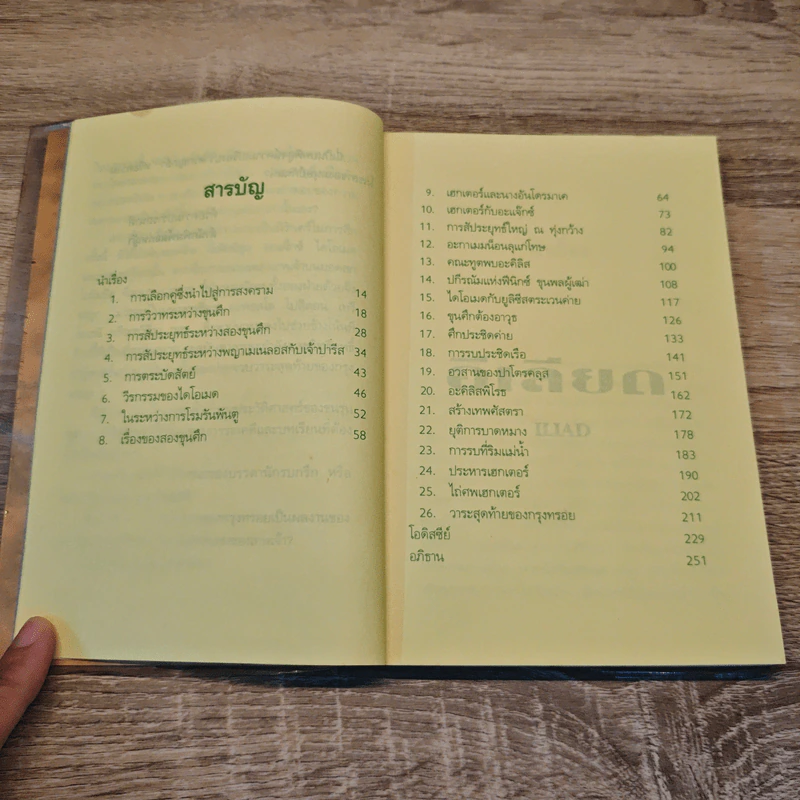 สารบัญ
นำเรื่อง
1. การเลือกคู่ซึ่งนำไปสู่การสงคราม 14
2. การวิวาทระหว่างขุนศึก 18
3. การสัประยุทธ์ระหว่างสองขุนศึก 28
4. การสัประยุทธ์ระหว่างพญาเมเนลอสกับเจ้าปารีส 34
5. การตระบัดสัตย์ 43
6. วีรกรรมของไดโอเมด 46
7. ในระหว่างการโรมรันพันตู 52
8. เรื่องของสองขุนศึก 58
9. เฮกเตอร์และนางอันโดรมาเค 64
10. เฮกเตอร์กับอะแจ๊กซ์ 73
11. การสัประยุทธ์ใหญ่ ณ ทุ่งกว้าง 82
12. อะกาเมมน็อนลุแก่โทษ 94
13. คณะทูตพบอะคิลิส 100
14. ปกีรณัมแห่งฟีนิกซ์ ขุนพลผู้เฒ่า 108
15. ไดโอเมดกับยูลิซิสตระเวนค่าย 117
16. ขุนศึกต้องอาวุธ 126
17. ศึกประชิดค่าย 133
18. การรบประชิดเรือ 141
19. อวสานของปาโตรคลุส 151
20. อะคิลิสพิโรธ 162
21. สร้างเทพศัสตรา 172
22. ยุติการบาดหมาง 178
23. การรบที่ริมแม่น้ำ 183
24. ประหารเฮกเตอร์ 190
25. ไถ่ศพเฮกเตอร์ 202
26. วาระสุดท้ายของกรุงทรอย 211
โอดิสซีย์ 229
อภิธาน 251